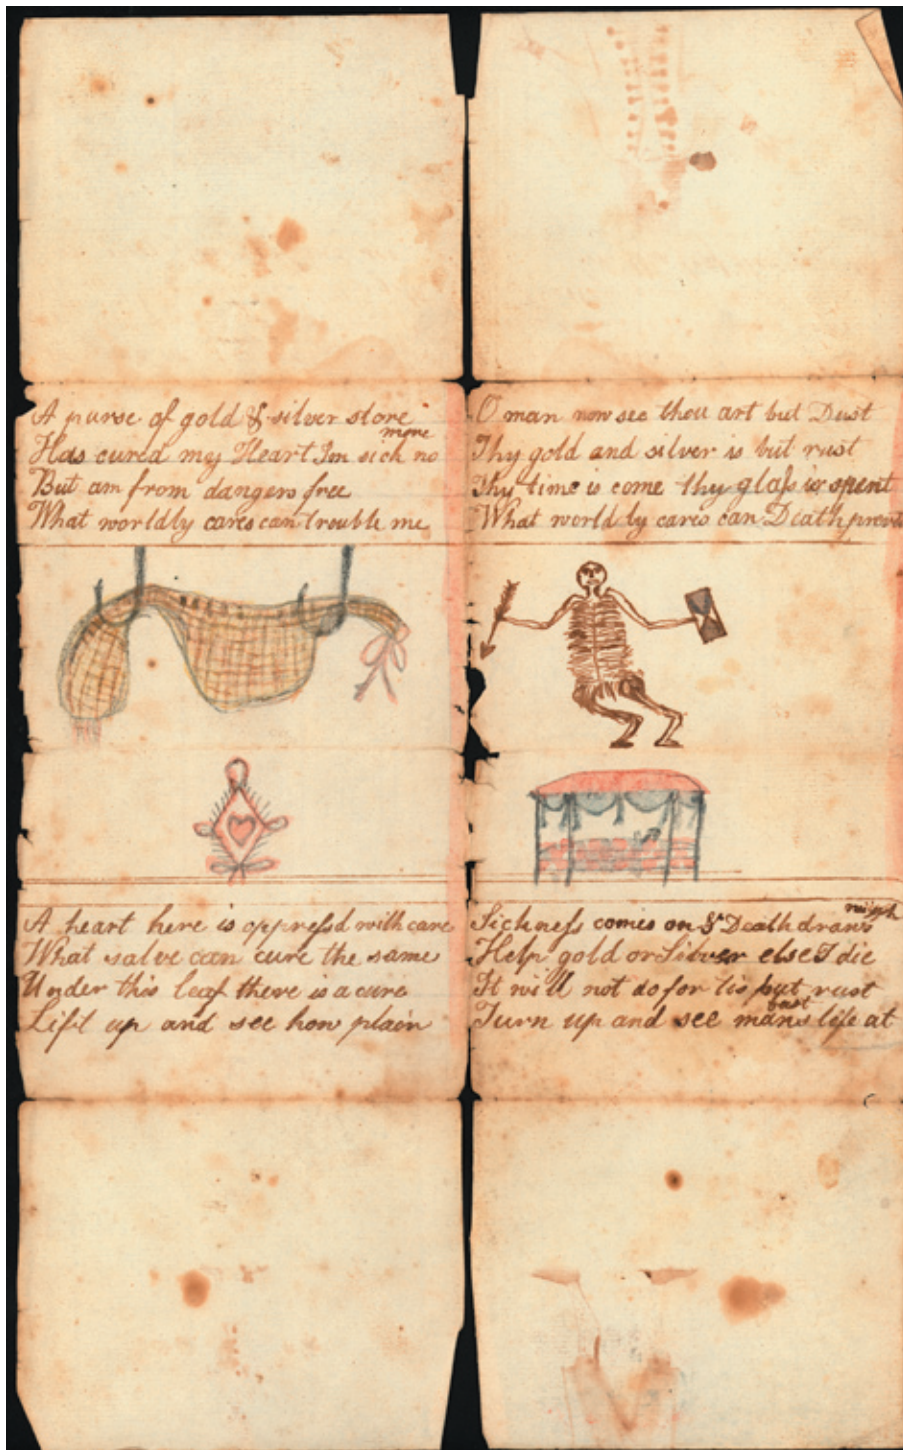 A purse of gold & silver store
Has cured my Heart Im sick no more
But am from dangers free
What worldly cares can trouble me
A heart here is oppreſsd with care
What salve can cure the same
Under this leaf there is a cure
Lift up and see how plain
O man now see thou art but Dust
Thy gold and silver is but rust
Thy time is come thy glaſs is spent
What worldly cares can Death
Sickneſs comes on & Death draws nigh
Help gold or Silver else I die
It will not do for tis but rust
Turn up and see mans life at